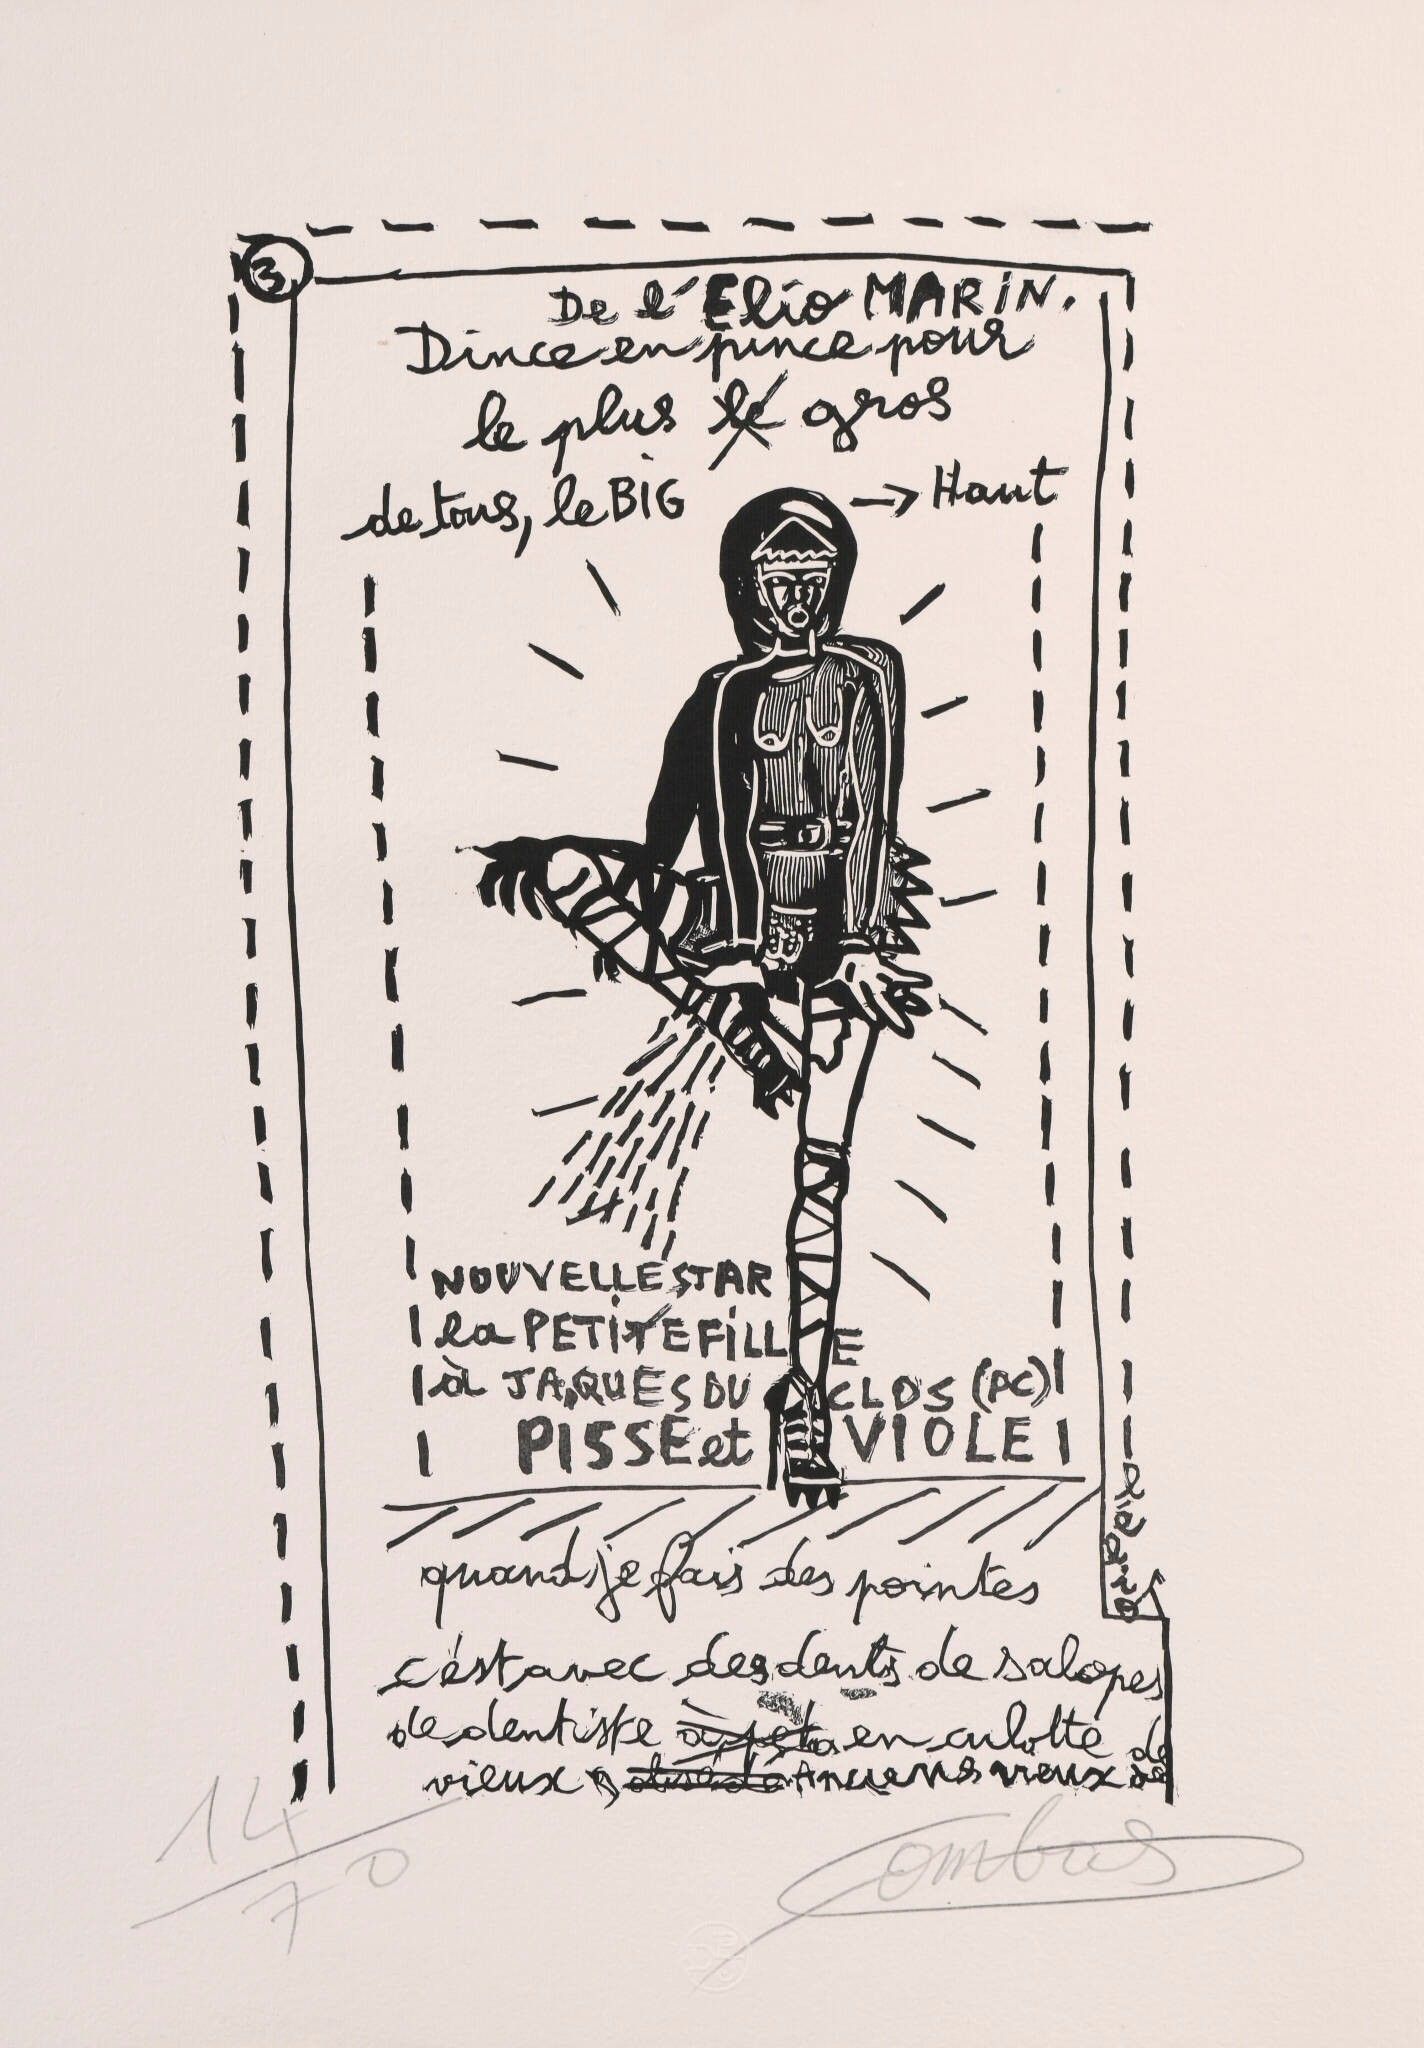 3
De l'Elio MARIN.
Dince en pince pour
le plus le gros
de tous, le BIG
→ Haut
NOUVELLE STAR
la PETITE FILLE
à JAQUES DU CLOS (PC)
PISSE et VIOLE
quand je fais des pointes
c'est avec des dents de salopes
de dentiste en culotte de
vieux Anciens vieux de
14/70
Combas